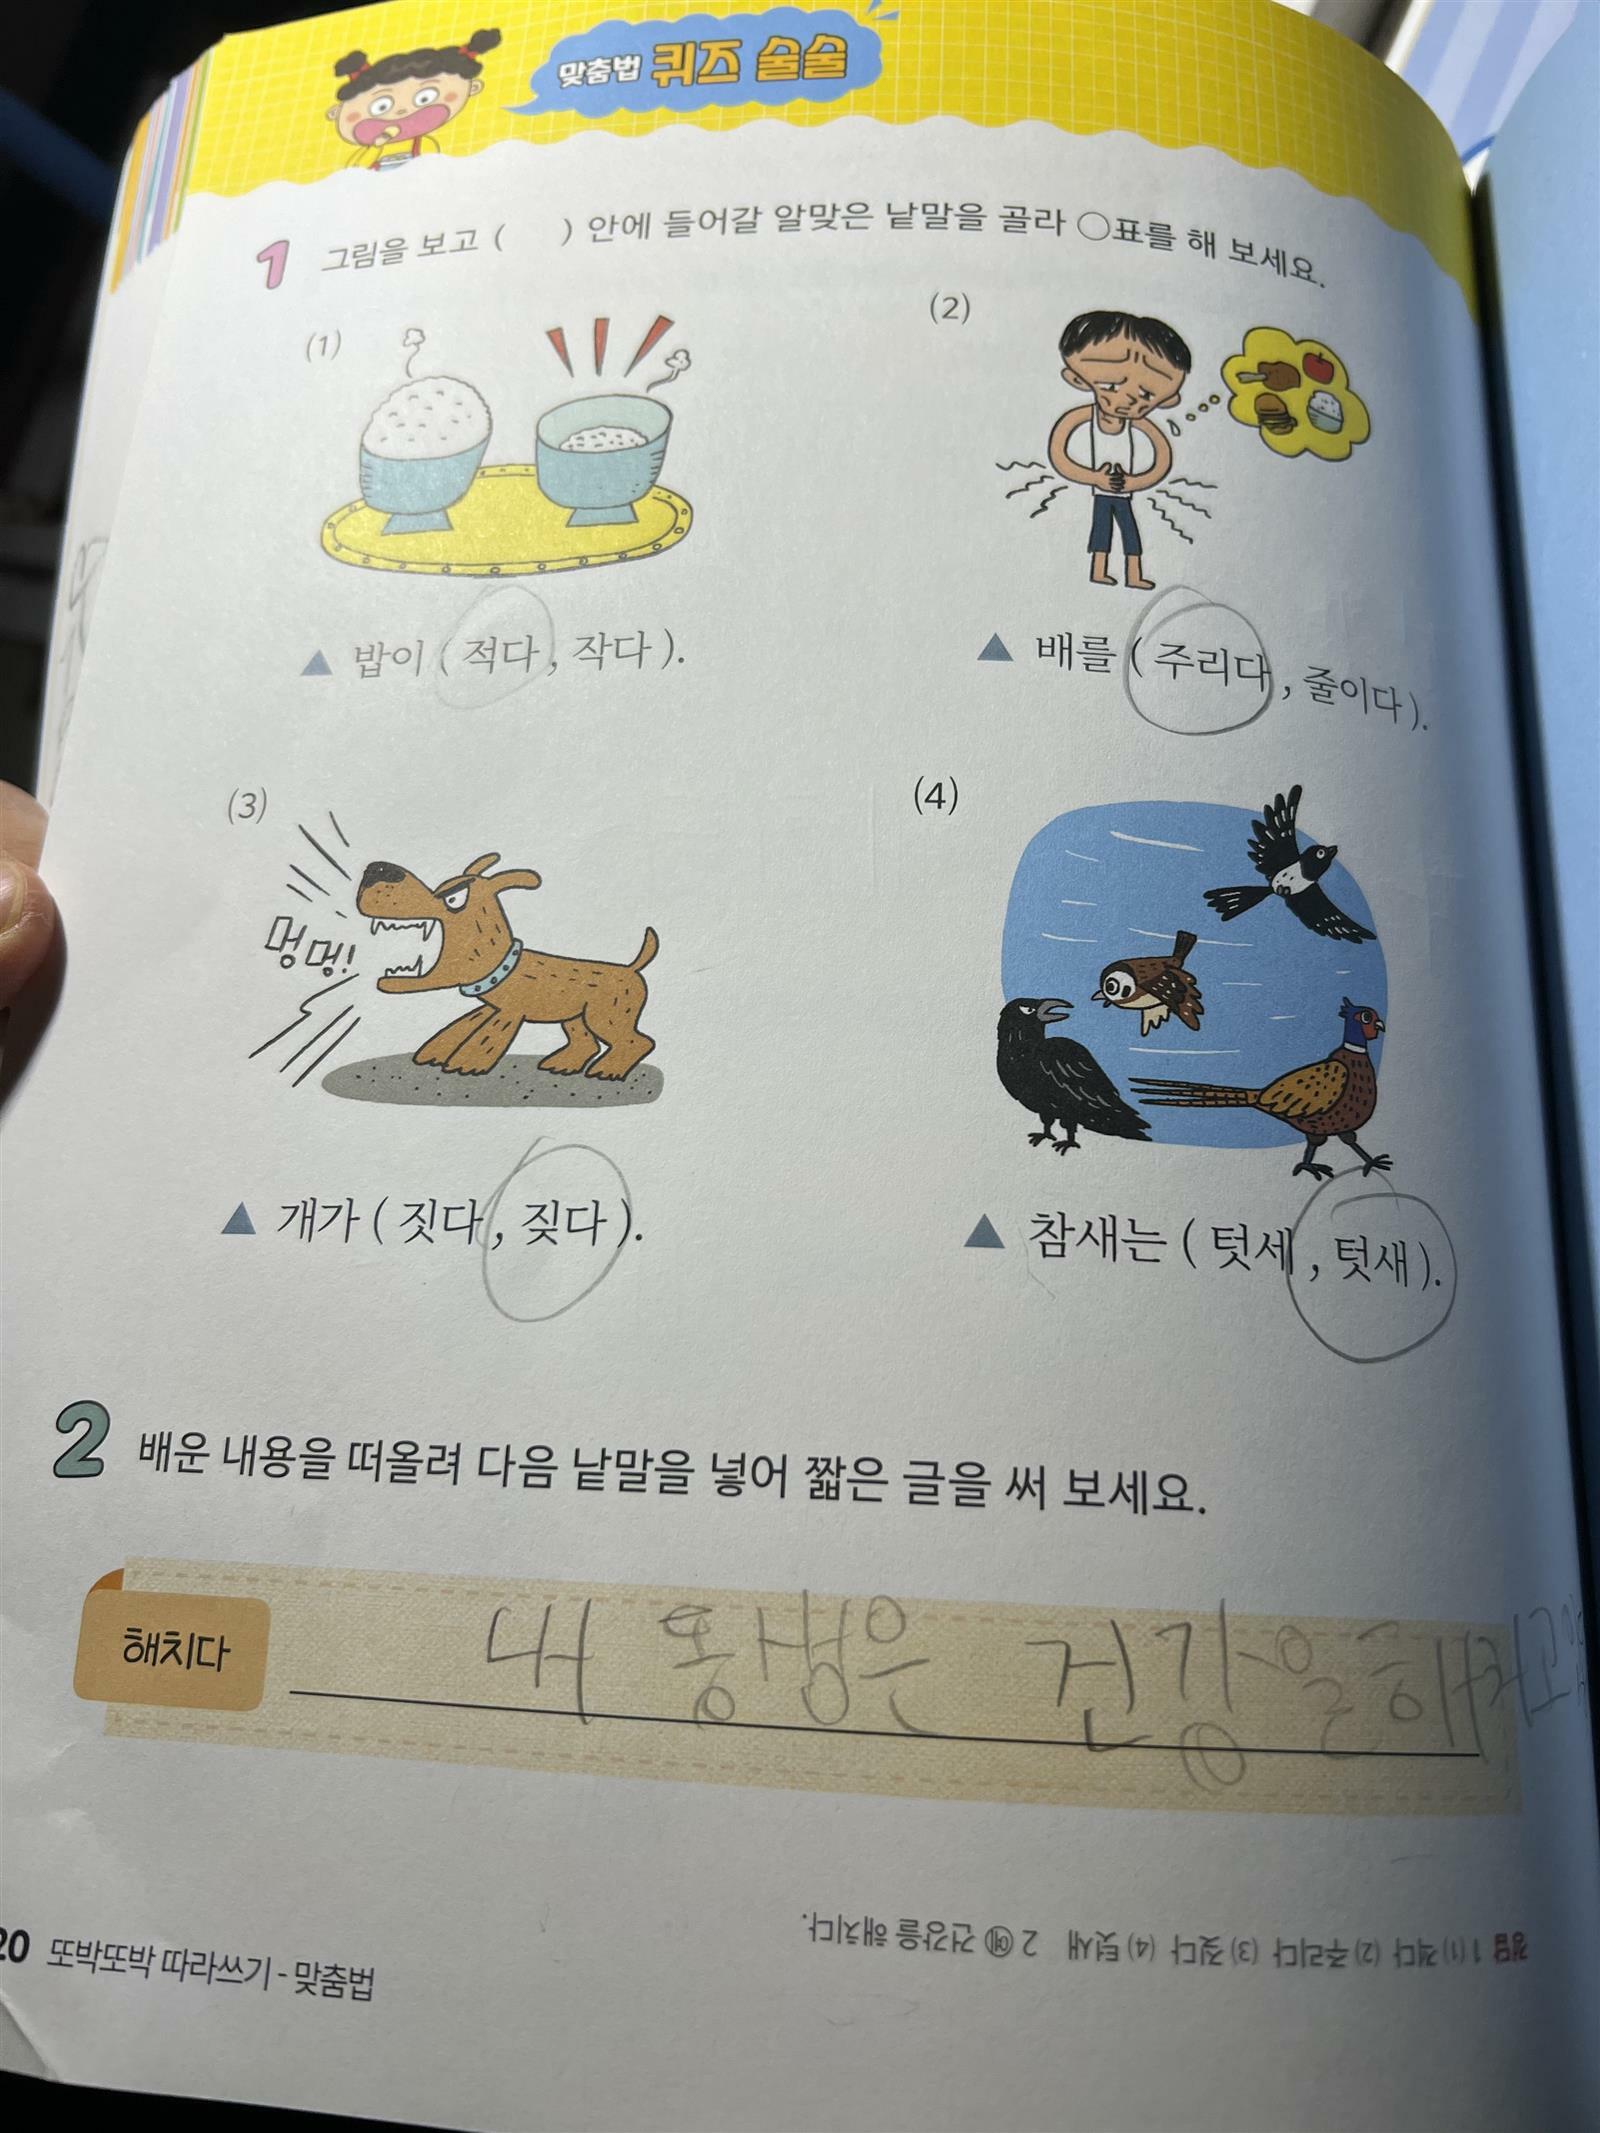 맞춤법 퀴즈 술술
1 그림을 보고 ( ) 안에 들어갈 알맞은 낱말을 골라 ○표를 해 보세요.
(1)
▲ 밥이 ( 적다 , 작다 ).
(2)
▲ 배를 ( 주리다 , 줄이다 ).
(3)
멍멍!
▲ 개가 ( 짓다 , 짖다 ).
(4)
▲ 참새는 ( 텃세 , 텃새 ).
2 배운 내용을 떠올려 다음 낱말을 넣어 짧은 글을 써 보세요.
해치다
내 동생은 건강을 해치고
정답 1 (1) 적다 (2) 주리다 (3) 짖다 (4) 텃새 2 예 건강을 해치다.
20 또박또박 따라쓰기 - 맞춤법